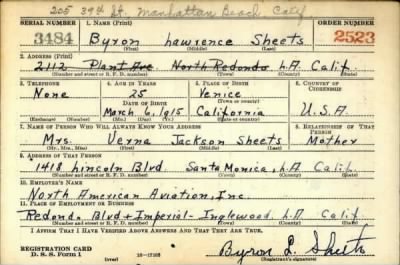 205 39th St. Manhattan Beach, Calif
SERIAL NUMBER 1. NAME (Print) ORDER NUMBER
3484 Byron Lawrence Sheets 2523
(First) (Middle) (Last)
2. ADDRESS (Print)
2112 Plant Ave North Redondo L.A. Calif.
(Number and street or R. F. D. number) (Town) (County) (State)
3. TELEPHONE 4. AGE IN YEARS 5. PLACE OF BIRTH 6. COUNTRY OF CITIZENSHIP
None 25 Venice
DATE OF BIRTH (Town or county)
March 6, 1915 California U.S.A.
(Exchange) (Number) (Mo.) (Day) (Yr.) (State or country)
7. NAME OF PERSON WHO WILL ALWAYS KNOW YOUR ADDRESS 8. RELATIONSHIP OF THAT PERSON
Mrs. Verna Jackson Sheets Mother
(Mr., Mrs., Miss) (First) (Middle) (Last)
9. ADDRESS OF THAT PERSON
1418 Lincoln Blvd Santa Monica, L.A. Calif.
(Number and street or R. F. D. number) (Town) (County) (State)
10. EMPLOYER'S NAME
North American Aviation, Inc.
11. PLACE OF EMPLOYMENT OR BUSINESS
Redondo Blvd + Imperial - Inglewood, L.A. Calif
(Number and street or R. F. D. number) (Town) (County) (State)
I AFFIRM THAT I HAVE VERIFIED ABOVE ANSWERS AND THAT THEY ARE TRUE.
REGISTRATION CARD
D. S. S. Form 1 (over) 16-17105 Byron L. Sheets
(Registrant's signature)